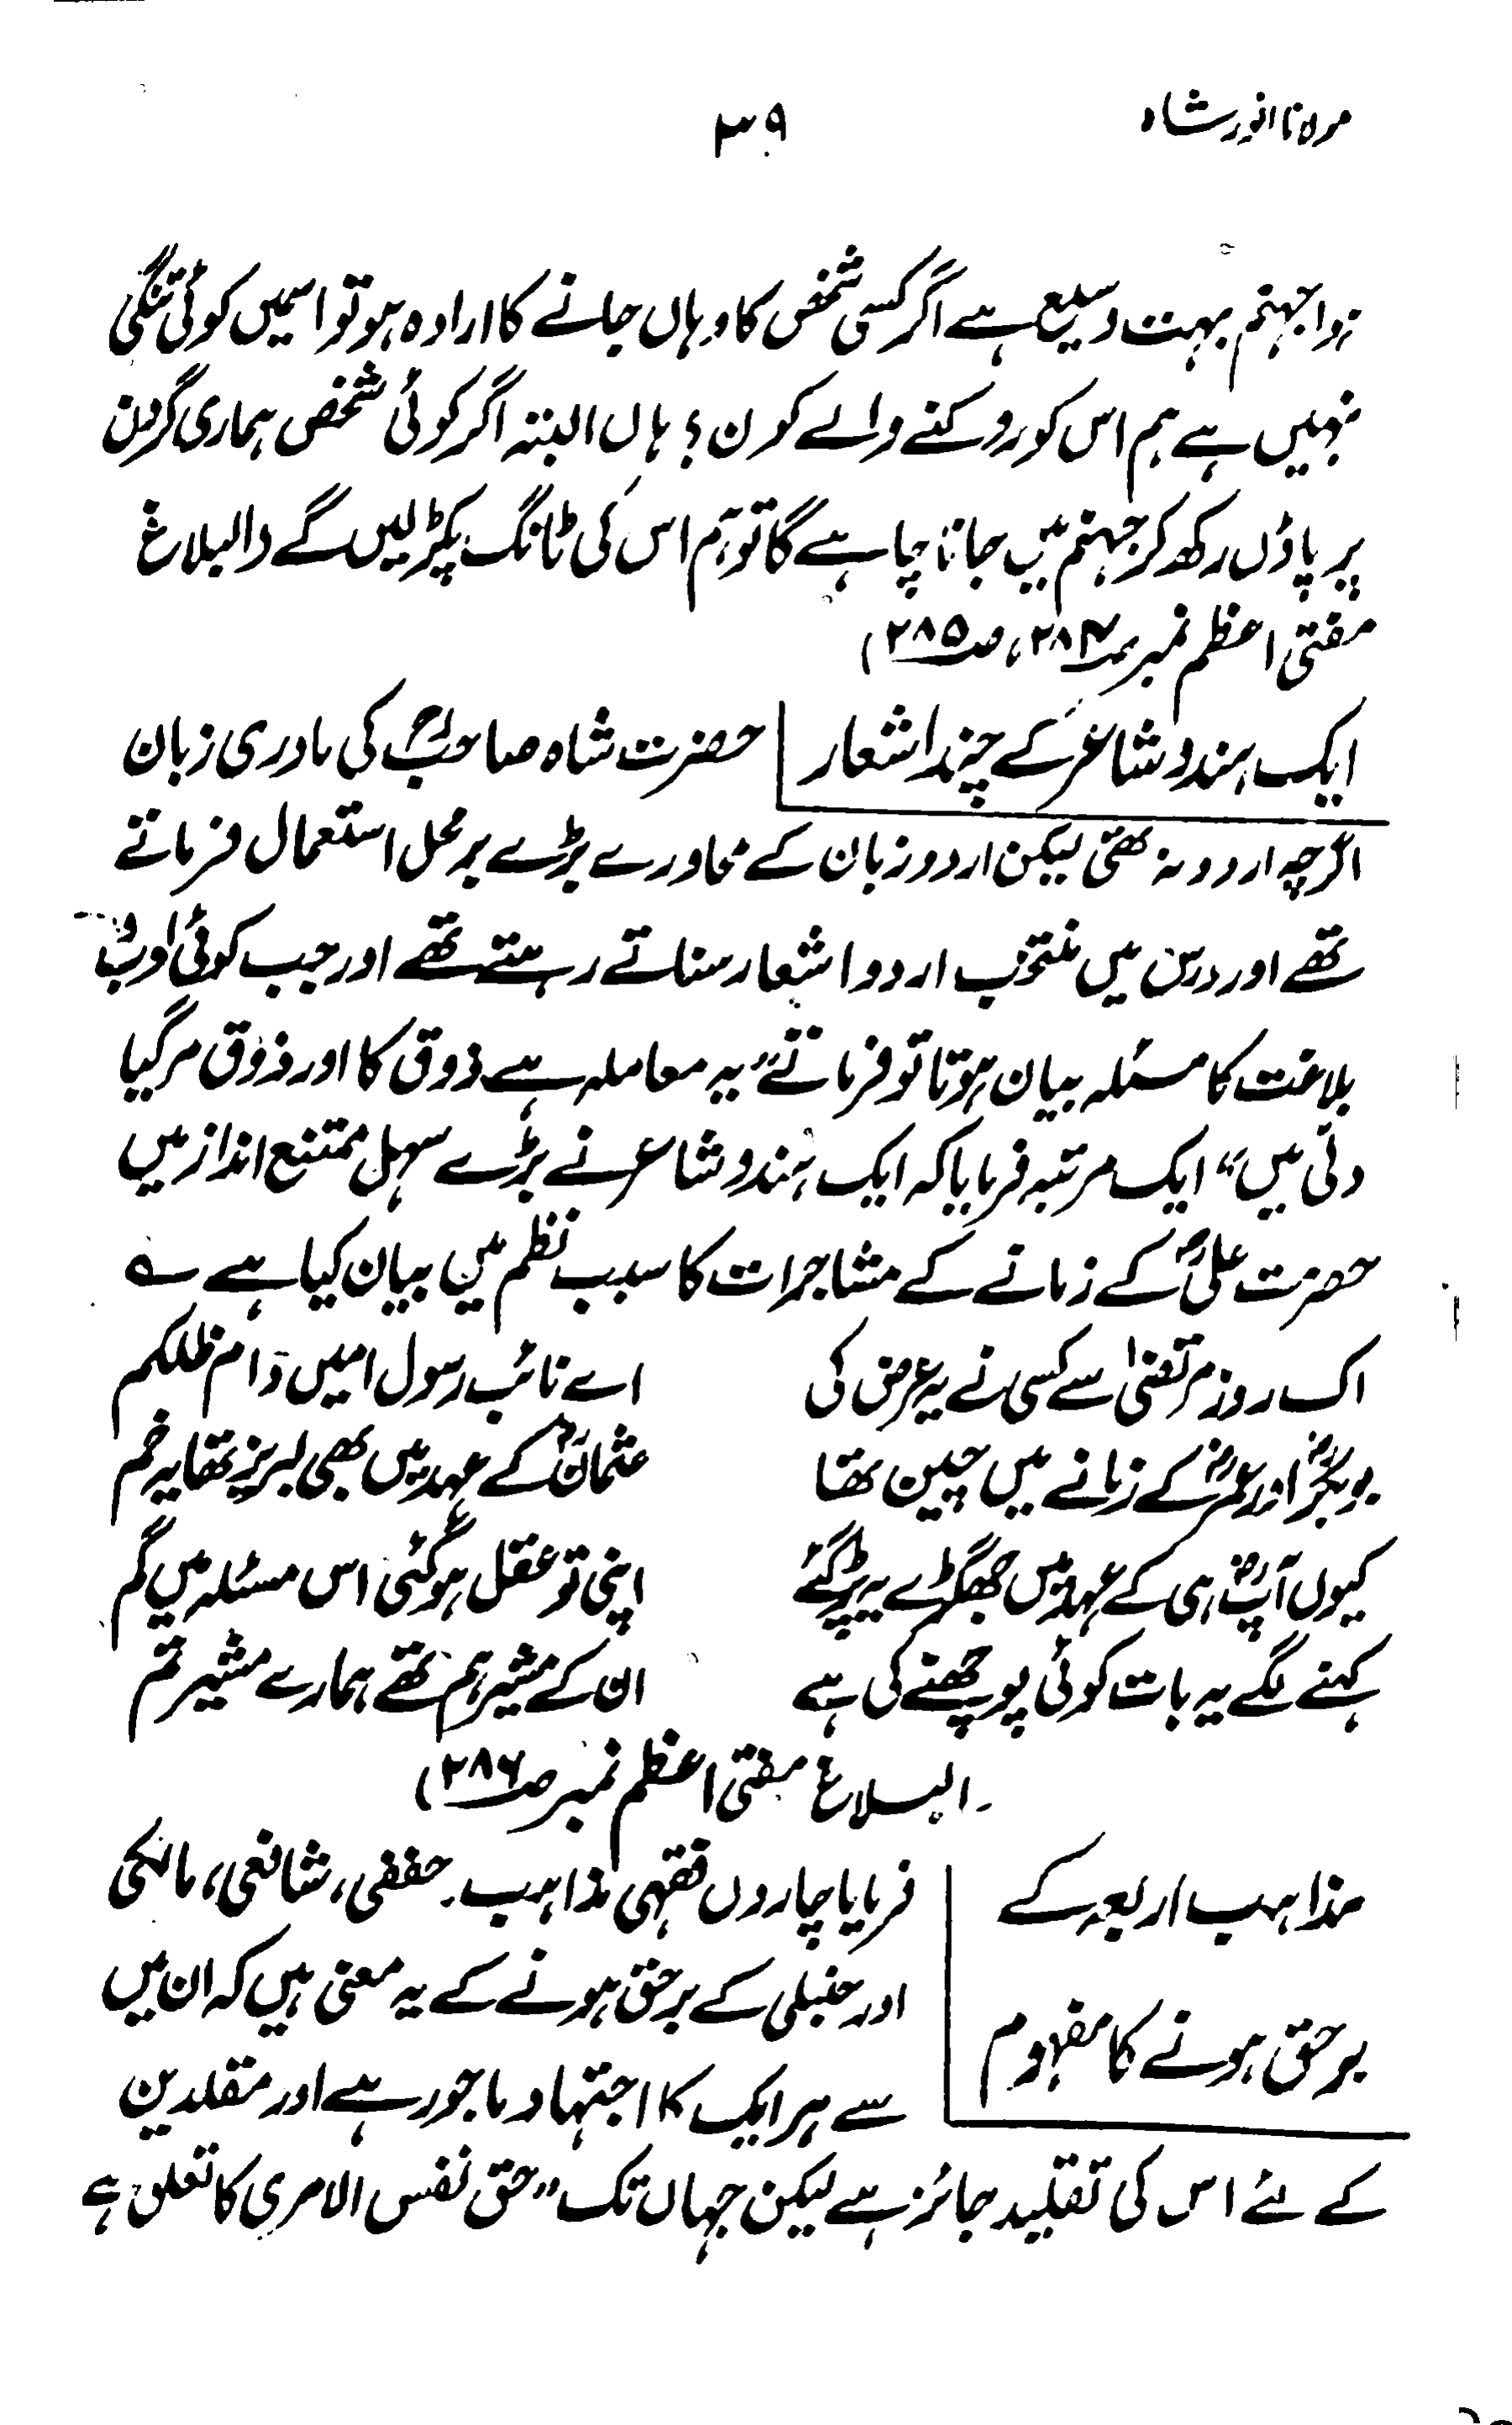 مولانا انور شاہ
۳۹
ہوا جہنم بہت وسیع ہے اگر کسی شخص کا وہاں جانے کا ارادہ ہو تو اسمیں کوئی تنگی
نہیں ہے ہم اس کو روکنے والے کون؟ ہاں البتہ اگر کوئی شخص ہماری گردن
پر پاؤں رکھ کر جہنم میں جانا چاہے گا تو ہم اس کی ٹانگ پکڑ لیں گے (البلاغ
مفتی اعظم نمبر صـ۲۸۴، صـ۲۸۵)
ایک ہندو شاعر کے چند اشعار
حضرت شاہ صاحبؒ کی مادری زبان
اگرچہ اردو نہ تھی لیکن اردو زبان کے محاورے بڑے برمحل استعمال فرماتے
تھے اور درس میں منتخب اردو اشعار سناتے رہتے تھے اور جب کوئی ادب و
بلاغت کا مسئلہ بیان ہوتا تو فرماتے "یہ معاملہ ہے ذوق کا اور ذوق مر گیا
دلی میں" ایک مرتبہ فرمایا کہ ایک ہندو شاعر نے بڑے سہل ممتنع انداز میں
حضرت علیؓ کے زمانے کے مشاجرات کا سبب نظم میں بیان کیا ہے ؎
اک روز مرتضیٰ سے کسی نے یہ عرض کی
اے نائب رسول امیں دام ظلکم
بوبکرؓ اور عمرؓ کے زمانے میں چین تھا
عثمانؓ کے عہد میں بھی لبریز تھا یہ خم
کیوں آپؓ ہی کے عہد میں جھگڑے یہ پڑ گئے
اپنی تو عقل ہو گئی اس مسئلہ میں گم
کہنے لگے یہ بات کوئی پوچھنے کی ہے
ان کے مشیر ہم تھے ہمارے مشیر تم
(البلاغ مفتی اعظم نمبر صـ۲۸۶)
مذاہب اربعہ کے
برحق ہونے کا مفہوم
فرمایا چاروں فقہی مذاہب۔ حنفی، شافعی، مالکی
اور حنبلی کے برحق ہونے کے یہ معنی ہیں کہ ان میں
سے ہر ایک کا اجتہاد ماجور ہے اور مقلدین
کے لئے اس کی تقلید جائز ہے لیکن جہاں تک "حق نفس الامری کا تعلق ہے